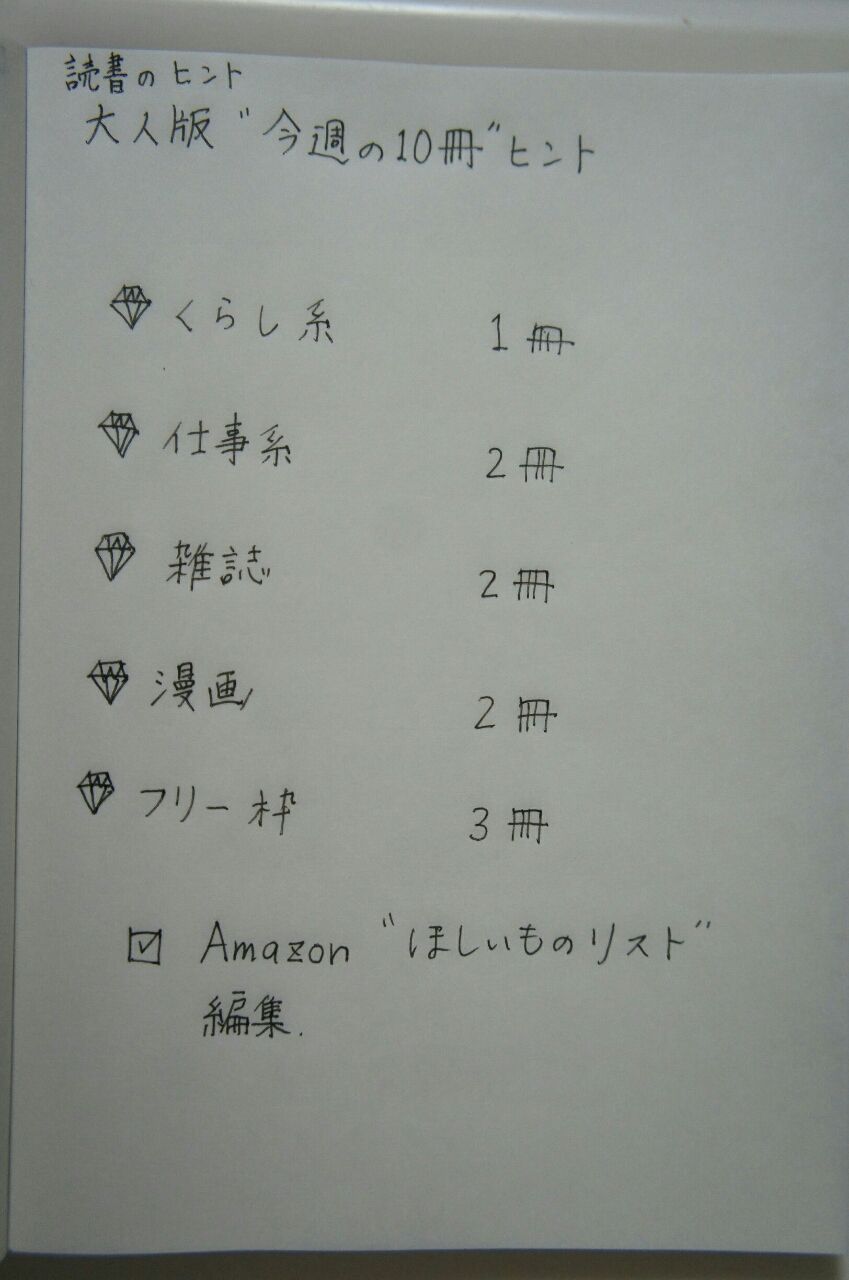 読書のヒント
大人版"今週の10冊"ヒント
くらし系 1冊
仕事系 2冊
雑誌 2冊
漫画 2冊
フリー枠 3冊
Amazon "ほしいものリスト"
編集.